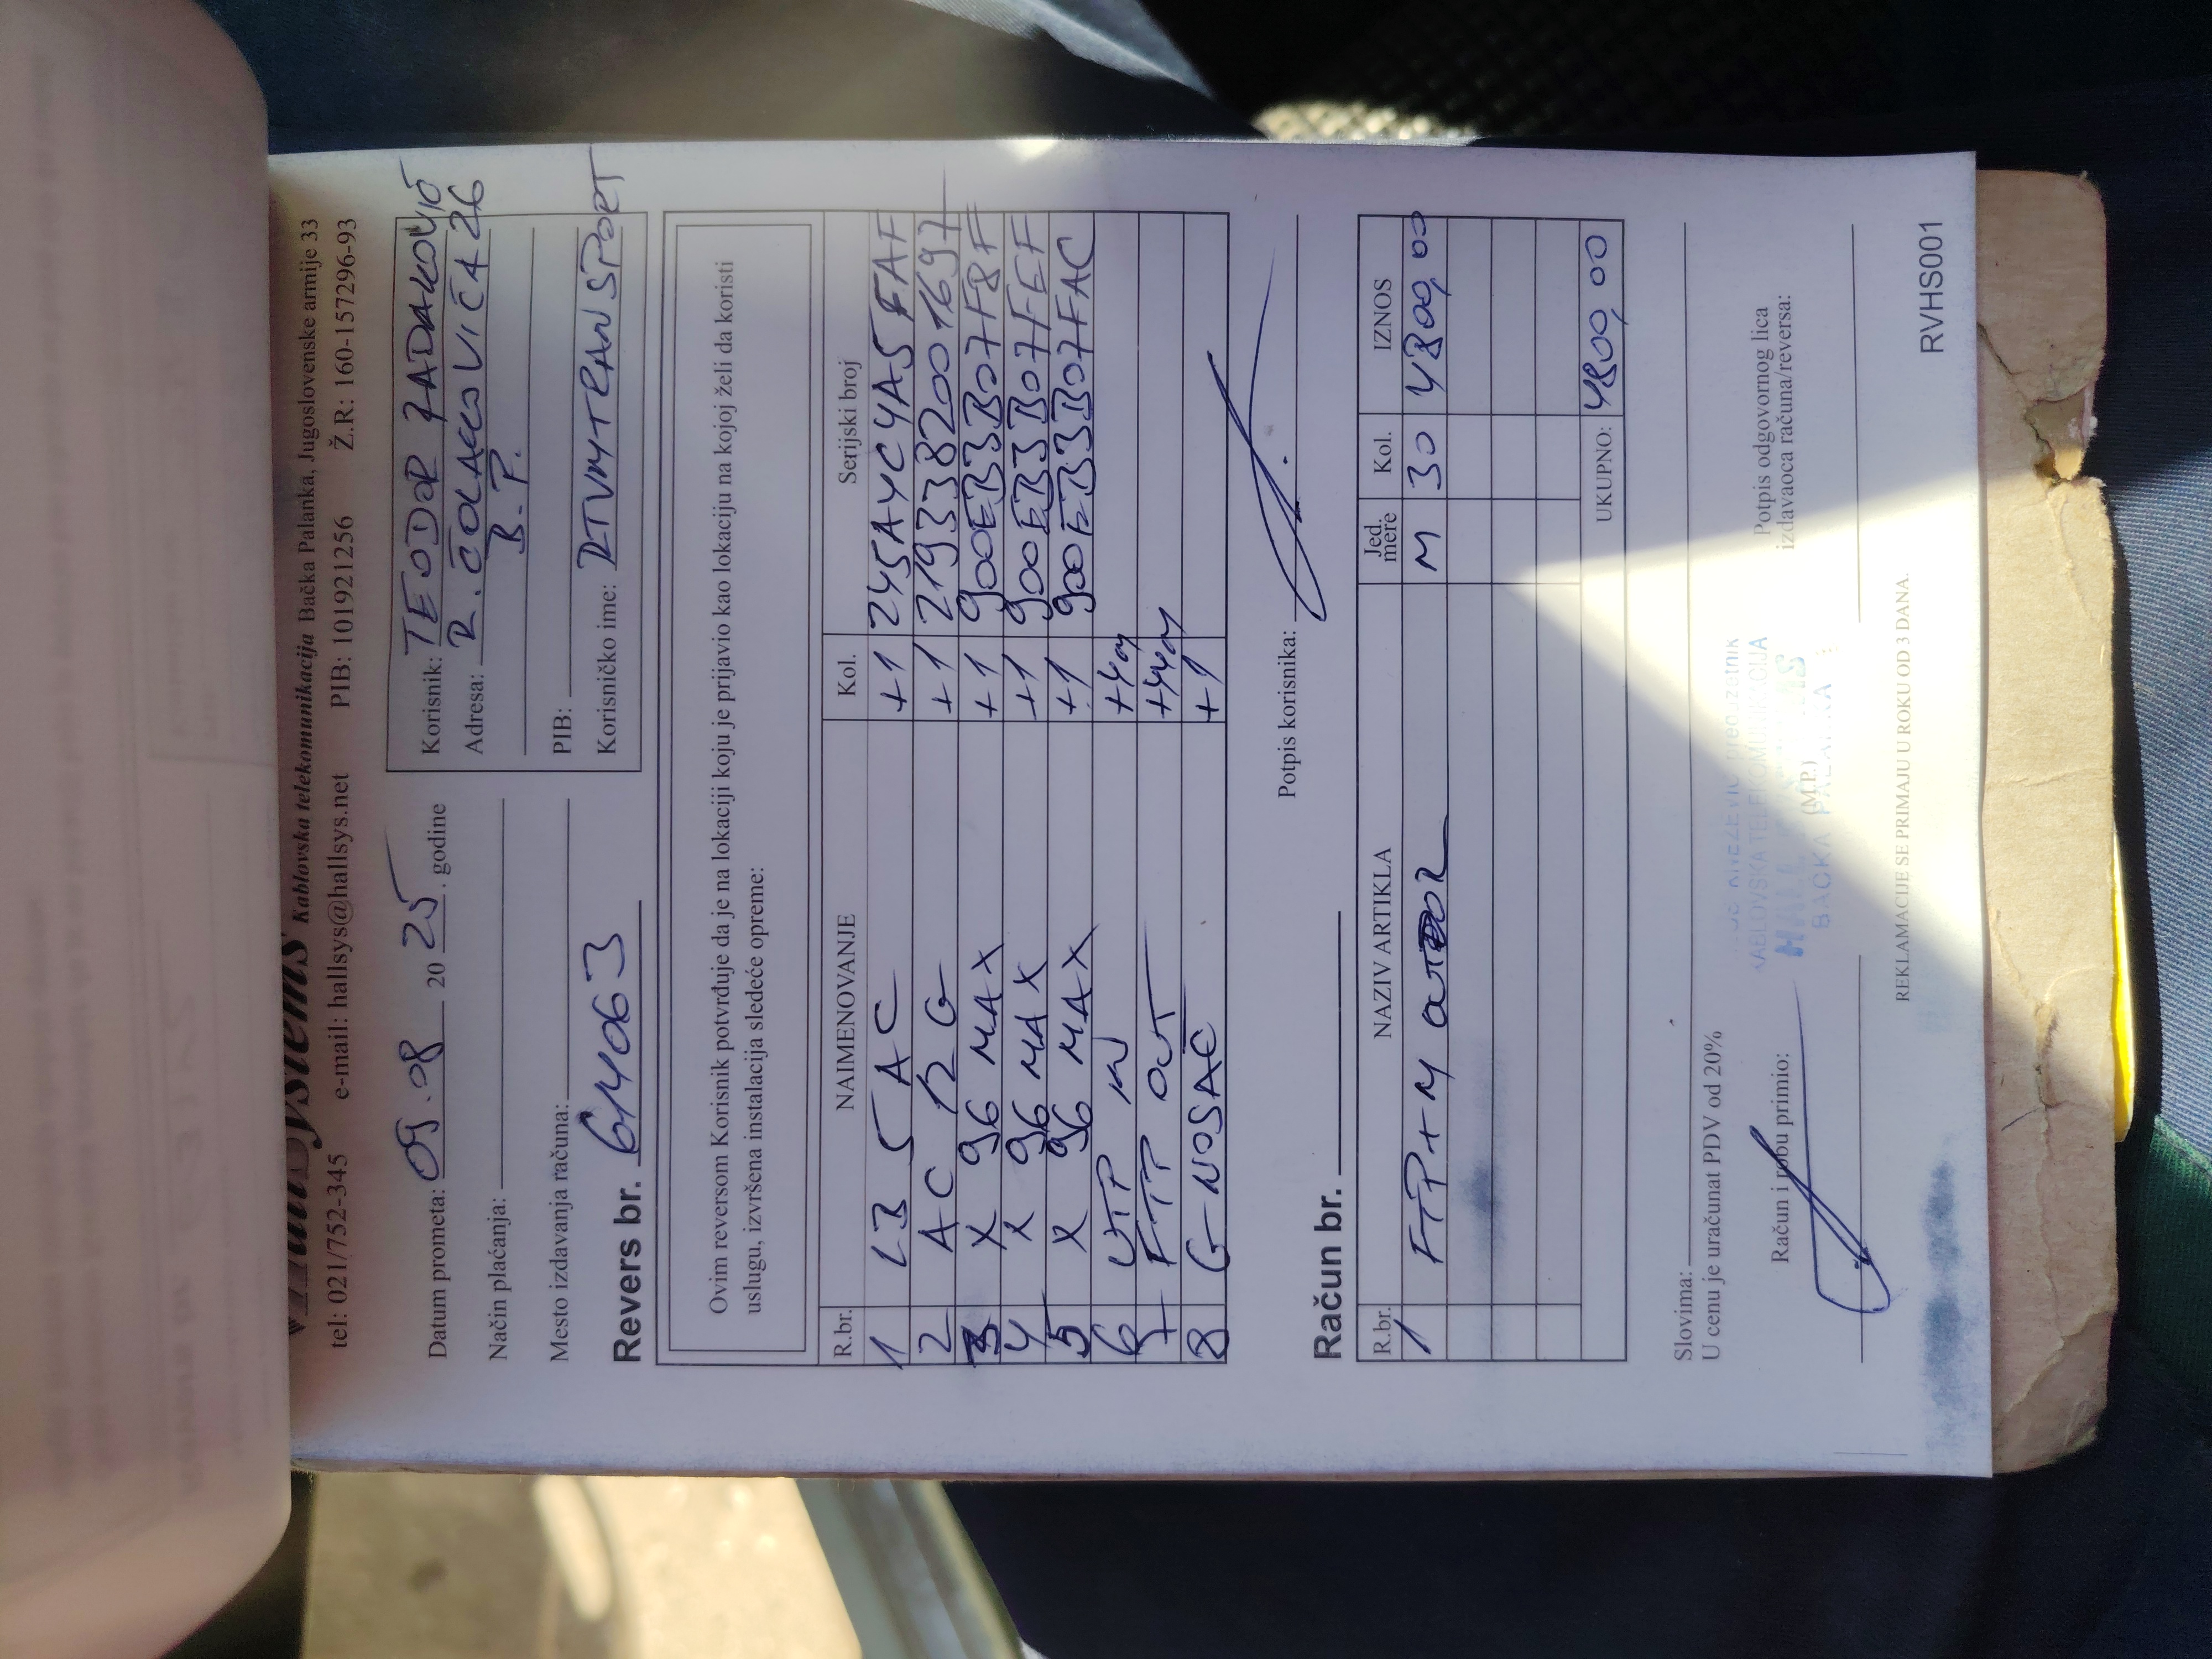 HallSystems Kablovska telekomunikacija Bačka Palanka, Jugoslovenske armije 33
tel: 021/752-345 e-mail: hallsys@hallsys.net PIB: 101921256 Ž.R: 160-157296-93
Datum prometa: 09.08 2025. godine
Način plaćanja:
Mesto izdavanja računa:
Revers br. 614063
Korisnik: TEODOR
Adresa: R. ČOLAKOVIĆA 26
B.P.
PIB:
Korisničko ime: RTVMTRANSPORT
Ovim reversom Korisnik potvrđuje da je na lokaciji koju je prijavio kao lokaciju na kojoj želi da koristi
uslugu, izvršena instalacija sledeće opreme:
R.br. NAIMENOVANJE Kol. Serijski broj
1 LB 5 AC +1 245A4C4A5FAF
2 AC 12 G +1 2193382001697
3 X 96 MAX +1 900EB3B07F8F
4 X 96 MAX +1 900EB3B07FEF
5 X 96 MAX +1 900EB3B07FAC
6 UTP IN
7 FTP OUT
8 G-NOSAČ +1
Potpis korisnika:
Račun br.
R.br. NAZIV ARTIKLA Jed. mere Kol. IZNOS
1 FTP+M OUTDOR M 30 4800,00
UKUPNO: 4800,00
Slovima:
U cenu je uračunat PDV od 20%
Račun i robu primio:
(M.P.)
KABLOVSKA TELEKOMUNIKACIJA
BACKA PALANKA
Potpis odgovornog lica
izdavaoca računa/reversa:
REKLAMACIJE SE PRIMAJU U ROKU OD 3 DANA.
RVHS001